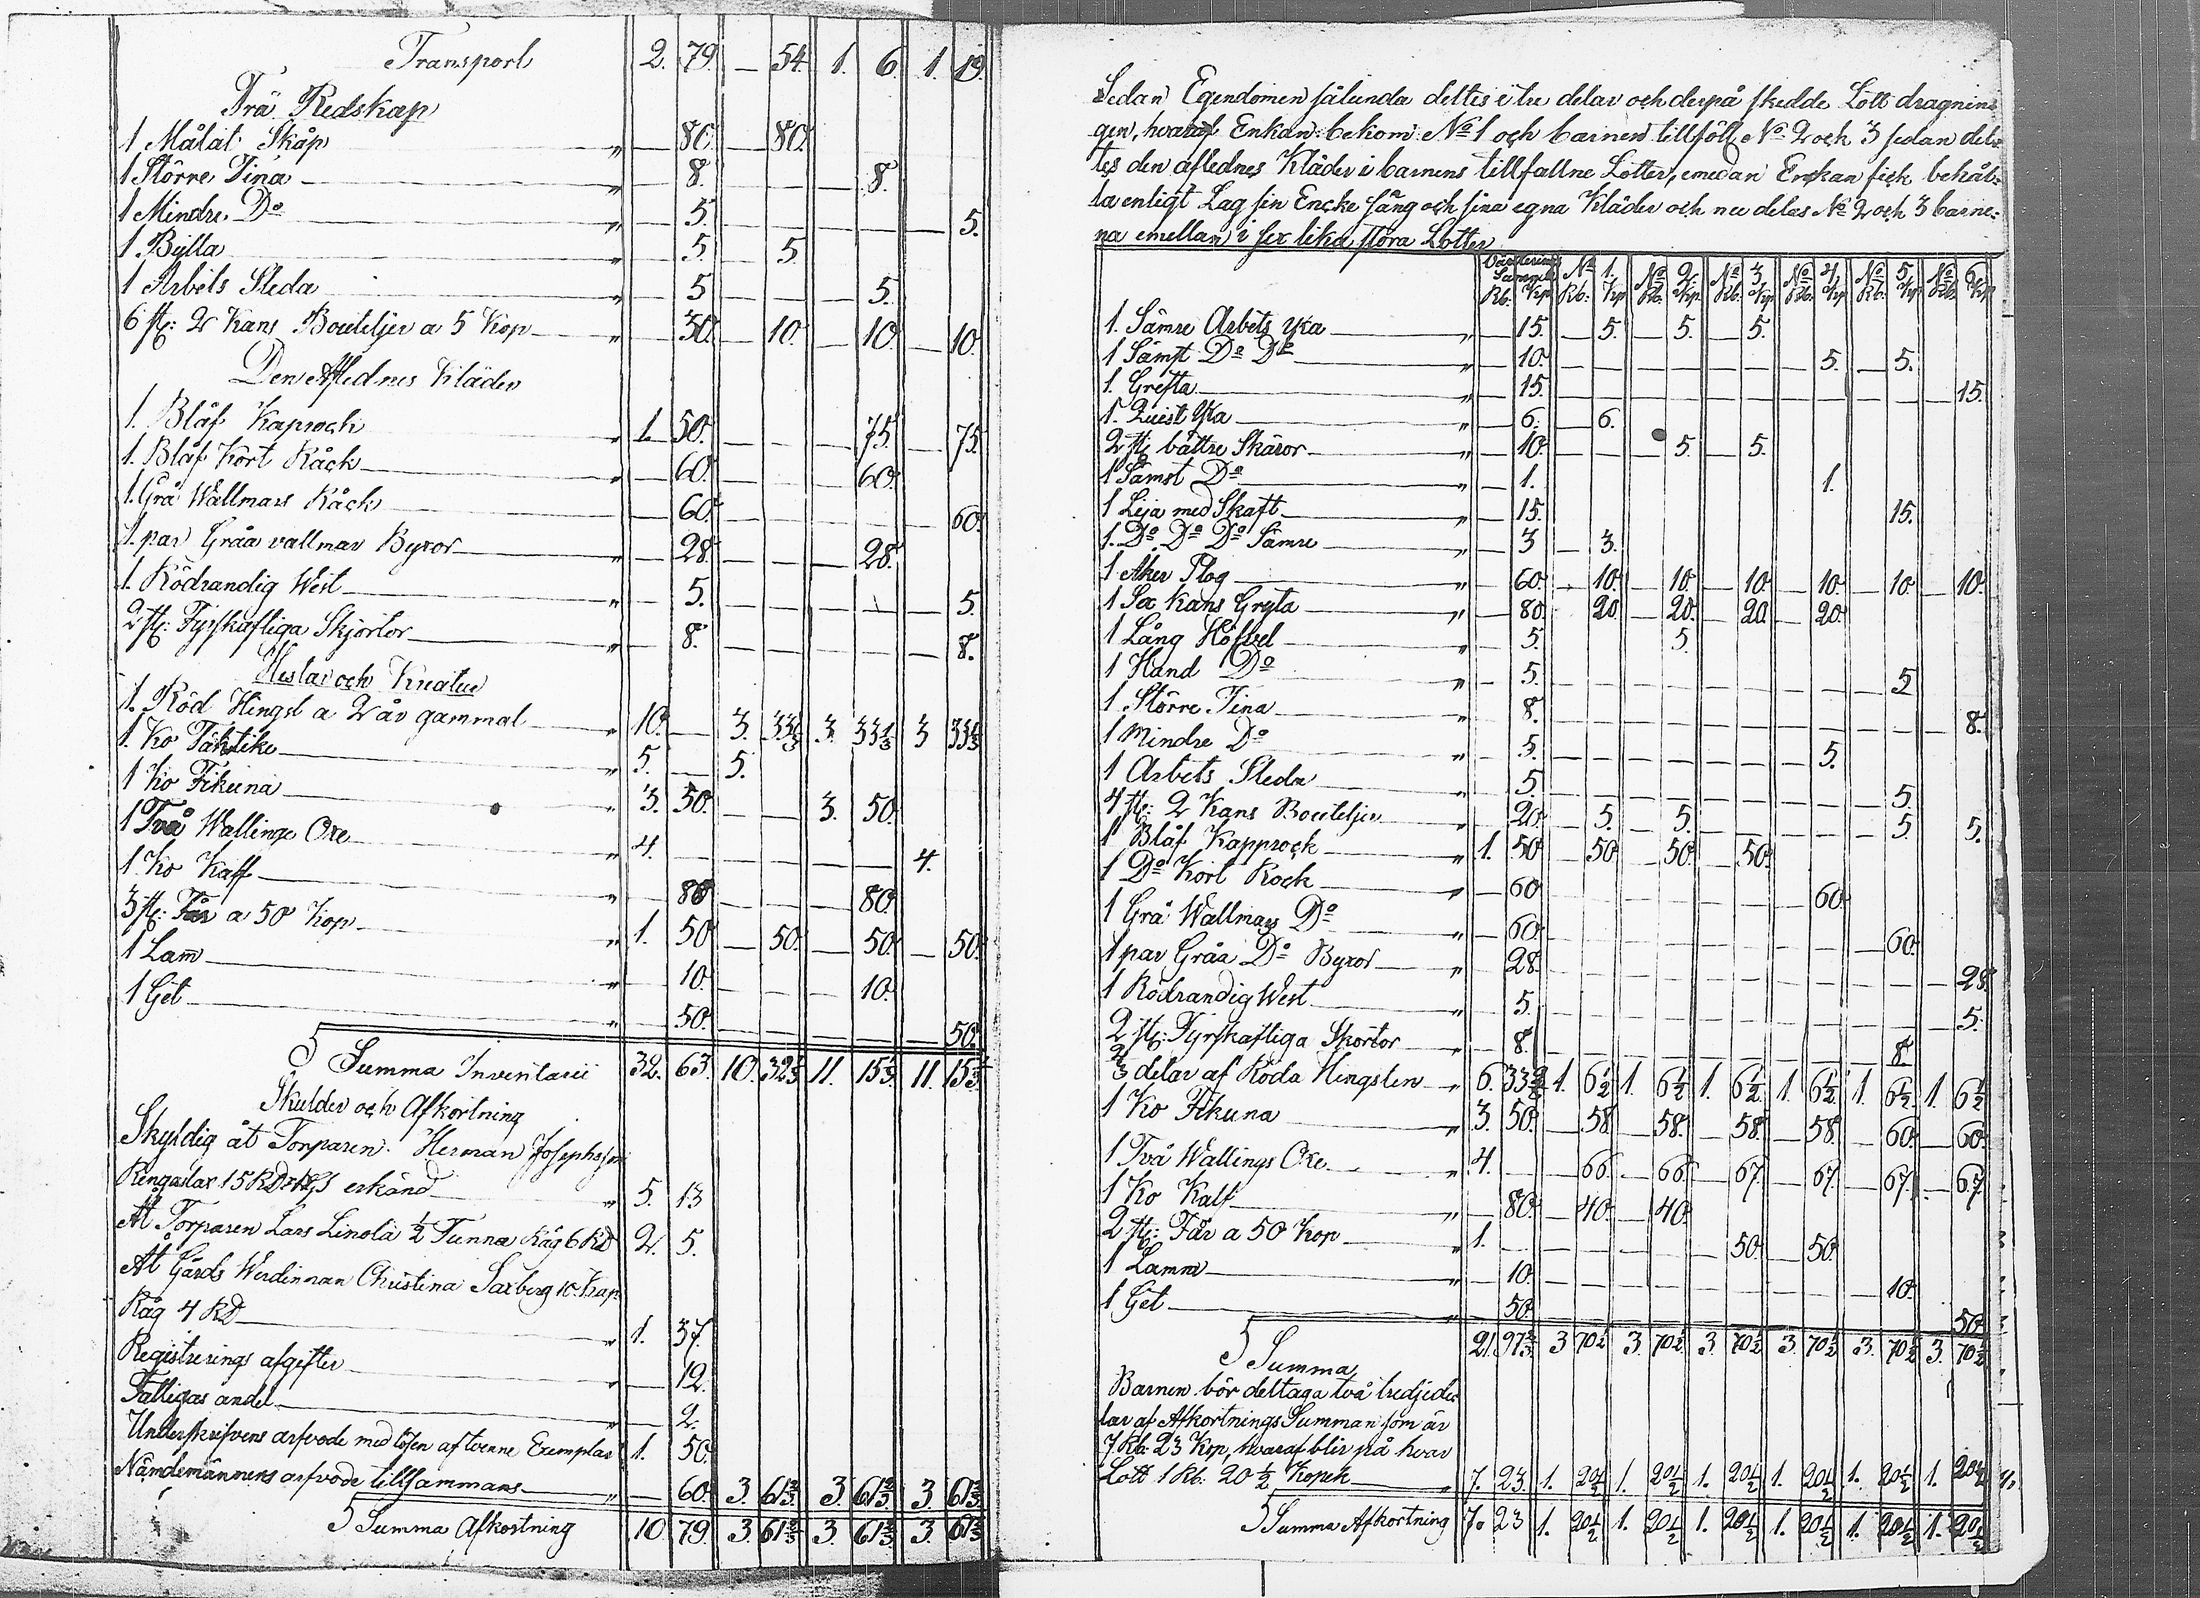 Transport 2. 79. — 54. 1. 6. 1. 19.
Trä Redskap
1 Målat Skåp " — 80. — 80.
1 Större Tina " — 8. — — — 8.
1 Mindre Do " — 5. — — — — — 5.
1. Bytta " — 5 — 5.
1 Arbets Sleda " — 5 — — — 5.
6 st: 2 Kans Bouteljer a 5 Kop " — 30. — 10. — 10. — 10.
Den Aflednes Kläder
1. Blåf Kaprock " 1. 50. — — — 75. — 75.
1. Blåf Kort Råck " — 60. — — — 60.
1. Grå Wallmars Råck " — 60. — — — — — 60.
1. par Gråa vallmar Byxor " — 28. — — — 28.
1. Rödrandig West " — 5. — — — — — 5.
2 st: Fyrskaftiga Skjortor " — 8. — — — — — 8.
Hestar och Kreatur
1. Röd Hingst a 2 år gammal " 10. — 3. 33 1/3 3. 33 1/3 3 33 1/3
1. Ko Täktike " 5. — 5.
1 Ko Fikuna " 3. 50. — — 3. 50.
1 Två Wallinge Oxe " 4. — — — — — 4.
1 Ko Kalf " — 80. — — — 80.
3 st: Får a 50 Kop " 1. 50 — 50. — 50. — 50.
1 Lam " — 10. — — — 10.
1 Get " — 50. — — — — — 50.
S Summa Inventarii 32. 63. 10. 32 1/3 11. 15 1/3 11. 15 1/3
Skulder och Afkortning
Skyldig åt Torparen Herman Josephsson
Rengastax 15 RD RGS erkänd " 5. 13
At Torparen Lars Linola 1/2 Tunna Råg 6 RD 2. 5.
At Gårds Werdinnan Christina Saxberg 10 Kap.
Råg 4 RD " 1. 37.
Registrerings afgifter — 12.
Fattigas andel " — 2.
Underskrifvens arfvode med lösen af tvenne Exemplar 1. 50.
Nämdemännens arfvode tillsammans " — 60. 3. 61 2/3 3. 61 2/3 3. 61 2/3
S Summa Afkortning 10. 79. 3. 61 2/3 3. 61 2/3 3. 61 2/3
Sedan Egendomen sålunda deltes i tre delar och derpå skedde Lott dragnin=
gen, hvaraf Enkan bekom No 1 och barnen tillföll No 2 och 3 sedan del=
tes den aflednes Kläder i barnens tillfallne Lotter, emedan Enkan fick behål=
la enligt Lag sin Encke säng och sina egna Kläder och nu delas No 2 och 3 barne=
na emellan i sex lika stora Lotter
Värderings Summa No 1. No 2 No 3 No 4 No 5 No 6
Rb. Kp Rb. Kp Rb. Kp Rb. Kp Rb. Kp Rb. Kp Rb. Kp
1. Sämre Arbets yxa " — 15. — 5. — 5. — 5.
1 Sämst Do Do " — 10. — — — — — — — 5. — 5.
1. Grefta " — 15. — — — — — — — — — — — 15.
1. Quist yxa " — 6. — 6.
2 st bättre Skäror " — 10. — — — 5. — 5.
1 Sämst Do " — 1. — — — — — — — 1.
1 Lija med Skaft " — 15. — — — — — — — — — 15.
1. Do Do Do Sämre " — 3 — 3.
1 Åker Plog " — 60 — 10. — 10. — 10. — 10. — 10. — 10.
1 Sex Kans Gryta " — 80. — 20. — 20. — 20. — 20.
1 Lång Höfvel " — 5. — — — 5.
1 Hand Do " — 5. — — — — — — — — — 5
1 Större Tina " — 8. — — — — — — — — — — — 8.
1 Mindre Do " — 5. — — — — — — — 5.
1 Arbets Sleda " — 5. — — — — — — — — — 5.
4 st: 2 Kans Bouteljer " — 20. — 5. — 5. — — — — — 5 5.
1 Blåf Kapprock " 1. 50 — 50. — 50. — 50.
1 Do Kort Rock " — 60 — — — — — — — 60.
1 Grå Wallmars Do " — 60. — — — — — — — — — 60.
1 par Gråa Do Byxor " — 28. — — — — — — — — — — — 28.
1 Rödrandig West " — 5. — — — — — — — — — — — 5.
2 st: Fyrskaftiga Skortor " — 8. — — — — — — — — — 8
2/3 delar af Röda Hingsten " 6. 33 2/3 1. 6 1/2 1. 6 1/2 1. 6 1/2 1. 6 1/2 1. 6 1/2 1. 6 1/2
1 Ko Fikuna " 3. 50. — 58 — 58. — 58. — 58. — 60. — 60.
1 Två Wallings Oxe " 4. — — 66. — 66. — 67. — 67. — 67. — 67.
1 Ko Kalf " — 80. — 40. — 40.
2 st: Får a 50 Kop " 1. — — — — — — 50. — 50.
1 Lamm " — 10. — — — — — — — — — 10.
1 Get " — 50. — — — — — — — — — — — 50.
S Summa 21. 97 2/3 3 70 1/2 3. 70 1/2 3. 70 1/2 3. 70 1/2 3. 70 1/2 3. 70 1/2
Barnen bör deltaga två tredjede=
lar af Afkortnings Summan som är
7 Rb. 23 Kop, hvaraf blir på hvar
Lott 1 Rb. 20 1/2 Kopek " 7. 23. 1. 20 1/2 1. 20 1/2 1. 20 1/2 1. 20 1/2 1. 20 1/2 1. 20 1/2
S Summa Afkortning 7. 23 1. 20 1/2 1. 20 1/2 1. 20 1/2 1. 20 1/2 1. 20 1/2 1. 20 1/2